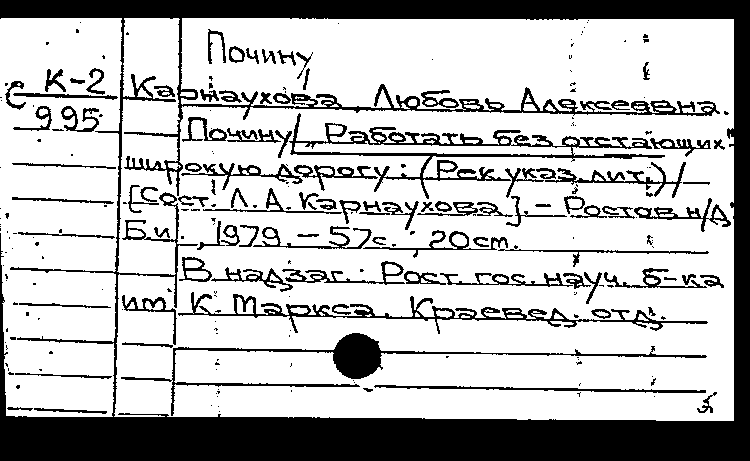 Почину
С К-2 Карнаухова, Любовь Алексеевна.
995 Почину „Работать без отстающих"
широкую дорогу : (Рек. указ. лит.) /
[Сост. Л. А. Карнаухова]. - Ростов н/Д:
Б.и., 1979. - 57с. ; 20см.
В надзаг. : Рост. гос. науч. б-ка
им. К. Маркса. Краевед. отд.